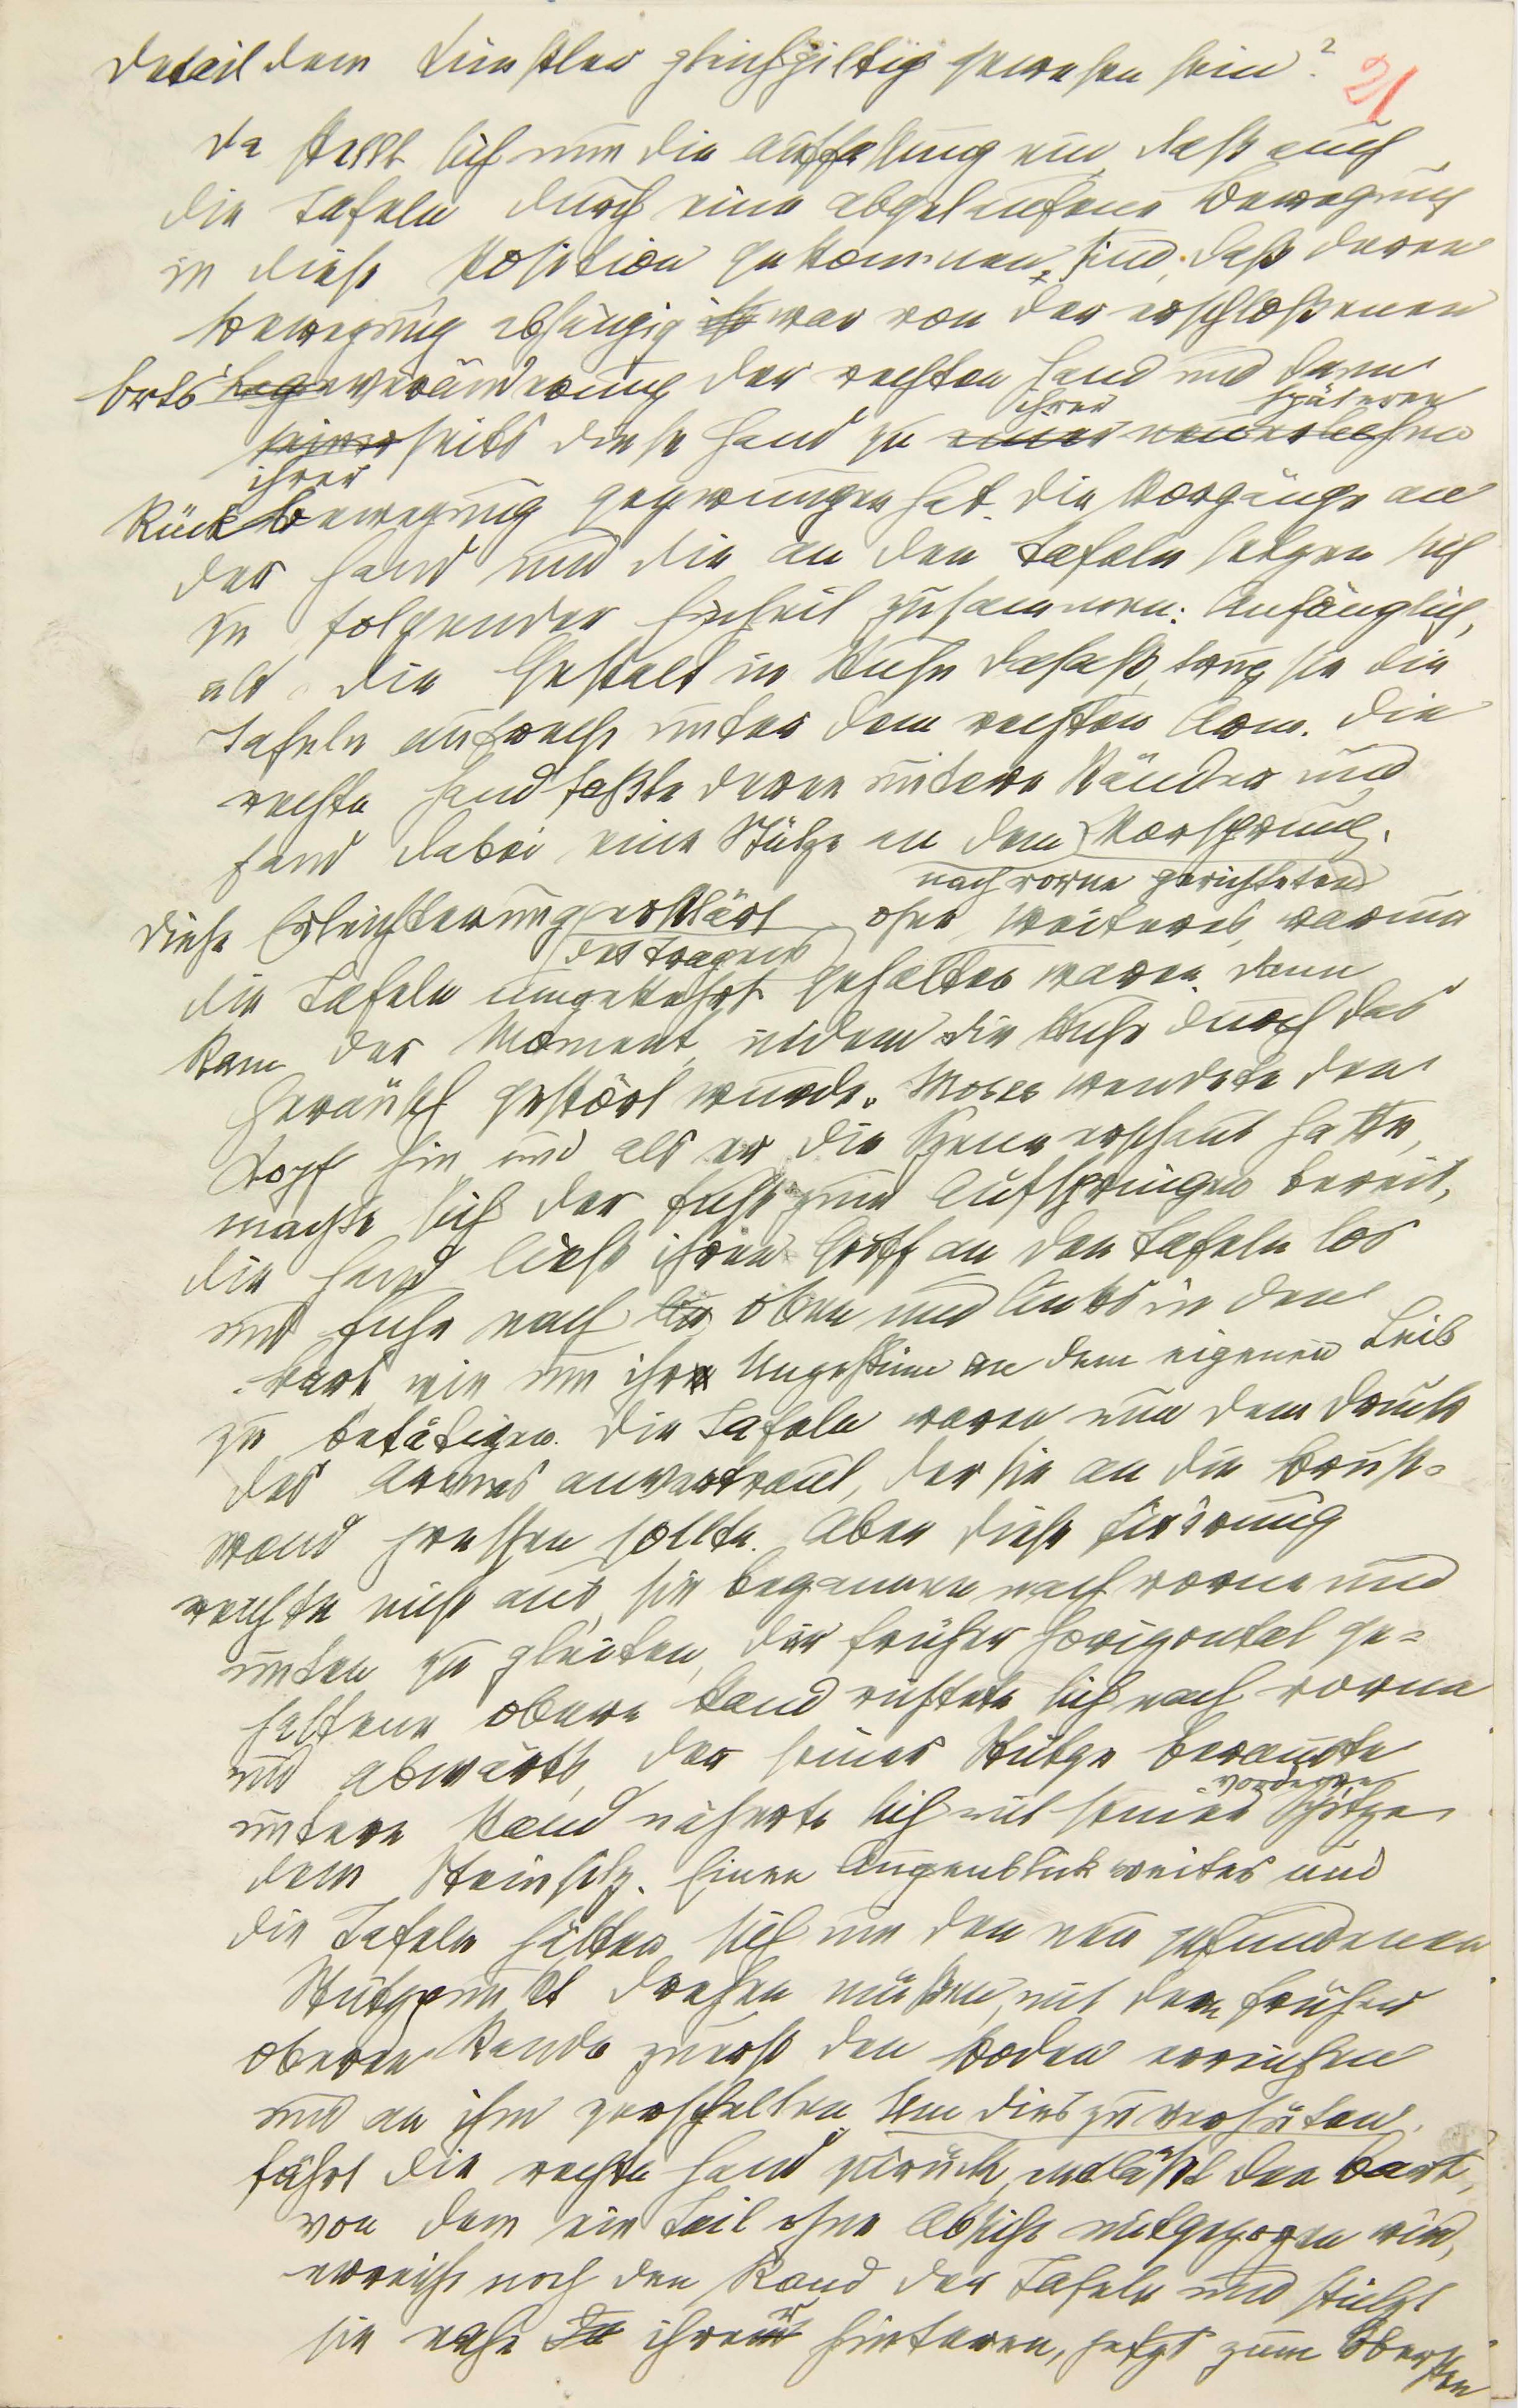 Detail dem Künstler gleichgiltig gewesen sein?
21
Da stellt sich nun die Auffassung ein, daß auch
die Tafeln durch eine abgelaufene Bewegung
in diese Position gekommen sind, daß deren
Bewegung abhängig war von der erschloßenen
Ortsveränderung der rechten Hand und dann
ihrerseits diese Hand zu ihrer späteren
Rückbewegung gezwungen hat. Die Vorgänge an
der Hand und die an den Tafeln setzen sich
zu folgender Einheit zusammen: Anfänglich,
als die Gestalt in Ruhe dasaß, trug sie die
Tafeln aufrecht unter dem rechten Arm. Die
rechte Hand faßte deren untere Ränder und
fand dabei eine Stütze an dem nach vorne gerichteten Vorsprung.
Diese Erleichterung des Tragens erklärt ohne weiteres, warum
die Tafeln umgekehrt gehalten waren. Dann
kam der Moment, indem die Ruhe durch das
Geräusch gestört wurde. Moses wendete den
Kopf hin und als er die Szene erschaut hatte,
machte sich der Fuß zum Aufspringen bereit,
die Hand ließ ihren Griff an den Tafeln los
und fuhr nach oben und links in den
Bart wie um ihr Ungestüm an dem eigenen Leib
zu betätigen. Die Tafeln waren nun dem Druck
des Armes anvertraut, der sie an die Brust=
wand pressen sollte. Aber diese Fixirung
reichte nicht aus, sie begannen nach vorne und
unten zu gleiten, der früher horizontal ge=
haltene obere Rand richtete sich nach vorne
und abwärts, der seiner Stütze beraubte
untere Rand näherte sich mit seiner vorderen Spitze
dem Steinsitz. Einen Augenblick weiter und
die Tafeln hätten sich um den neu gefundenen
Stützpunkt drehen müssen, mit dem früher
oberen Rande zuerst den Boden erreichen
und an ihm zerschellen. Um dies zu verhüten,
fährt die rechte Hand zurück, entläßt den Bart,
von dem ein Teil ohne Absicht mitgezogen wird,
erreicht noch den Rand der Tafeln und stützt
sie nahe ihrer hinteren, jetzt zum obersten